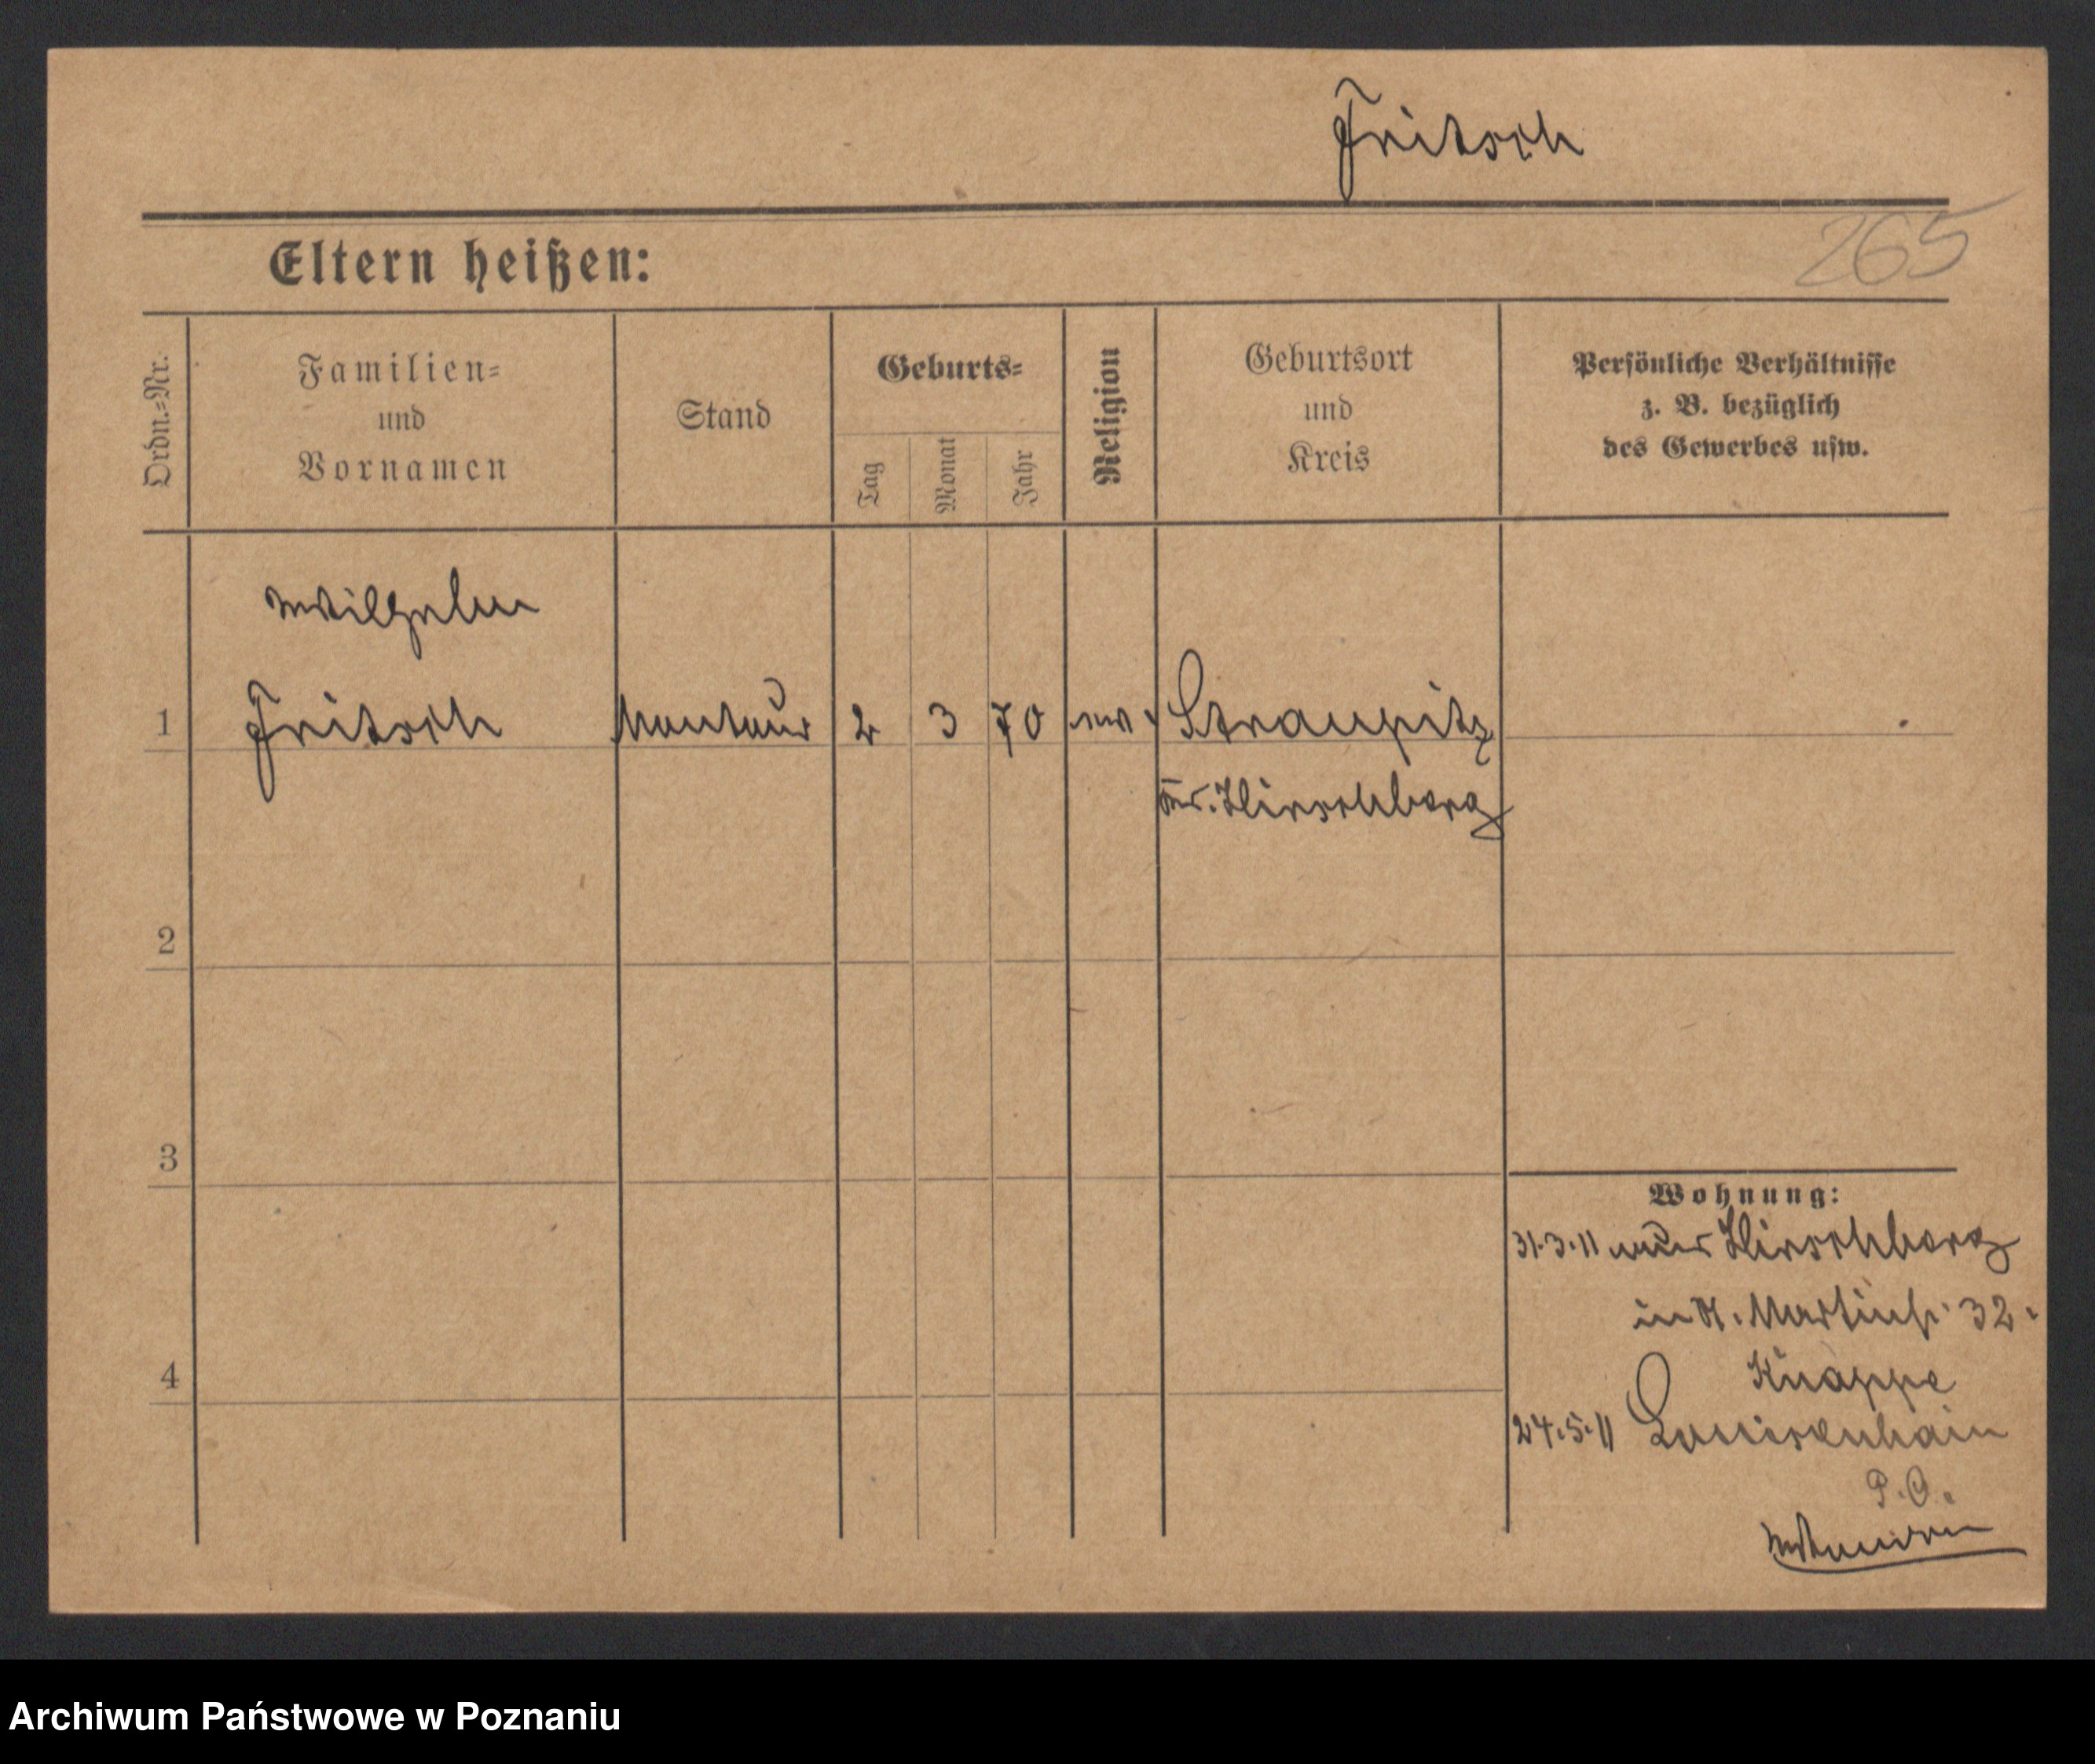 Fritsch
265
Eltern heißen:
Ordn.=Nr.
Familien=
und
Vornamen
Stand
Geburts=
Tag
Monat
Jahr
Religion
Geburtsort
und
Kreis
Persönliche Verhältnisse
z. B. bezüglich
des Gewerbes usw.
Wilhelm
1 Fritsch Monteur 2 3 70 ev. Straupitz
Kr. Hirschberg
2
3
4
Wohnung:
31.3.11 aus Hirschberg
in St. Martinstr. 32.
Knappe
24.5.11 Louisenhain
P. O.